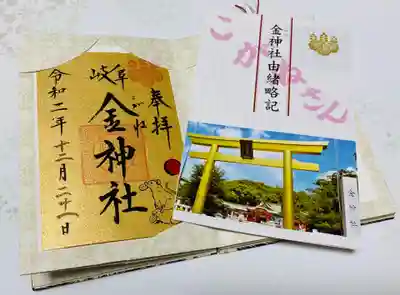 奉拝
岐阜
金神社
こがね
令和二年十二月二十八日
金神社由緒略記
こがねさん
金神社